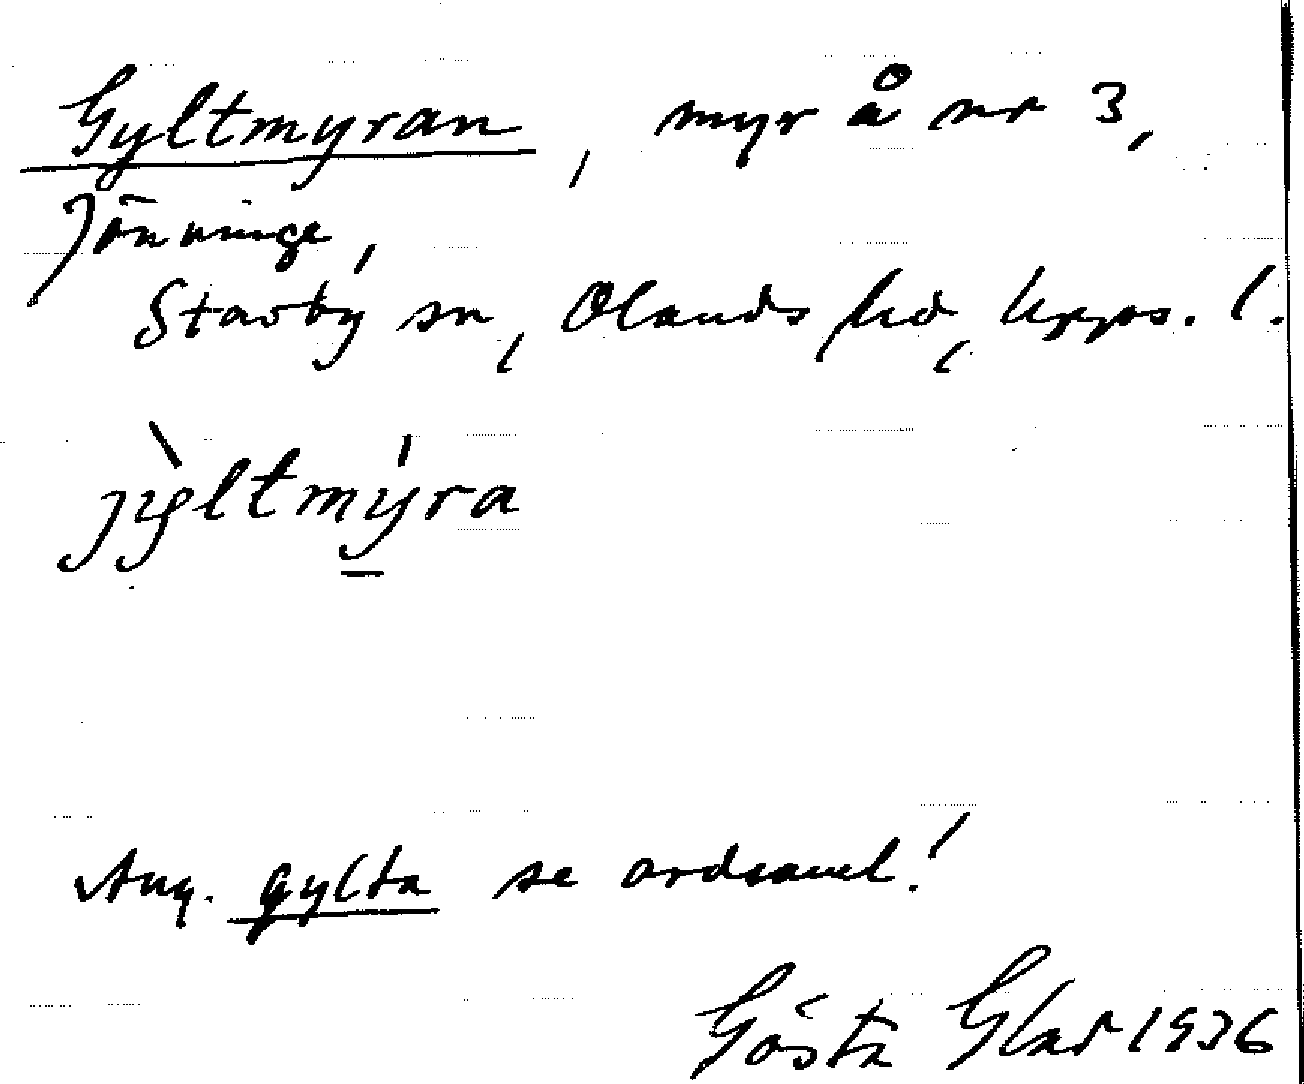 Gyltmyran, myr å nr 3,
Jönninge,
Stavby sn, Olands hd, Upps. l.
jỳltmýra
Ang. gylta se ordsaml.!
Gösta Glad 1936